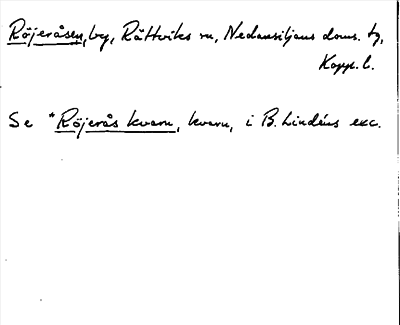 Röjeråsen, by, Rättviks sn, Nedansiljans doms. tg,
Kopp. l.
Se *Röjerås kvarn, kvarn, i B. Lindéns exc.